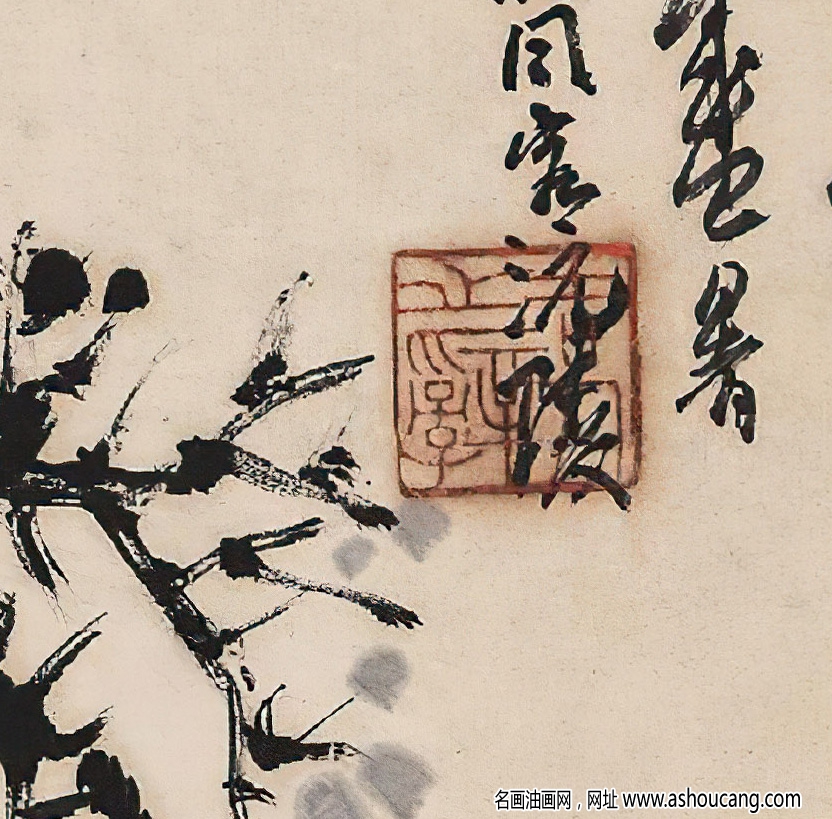 盛暑
同客沅陵
名画油画网，网址 www.ashoucang.com